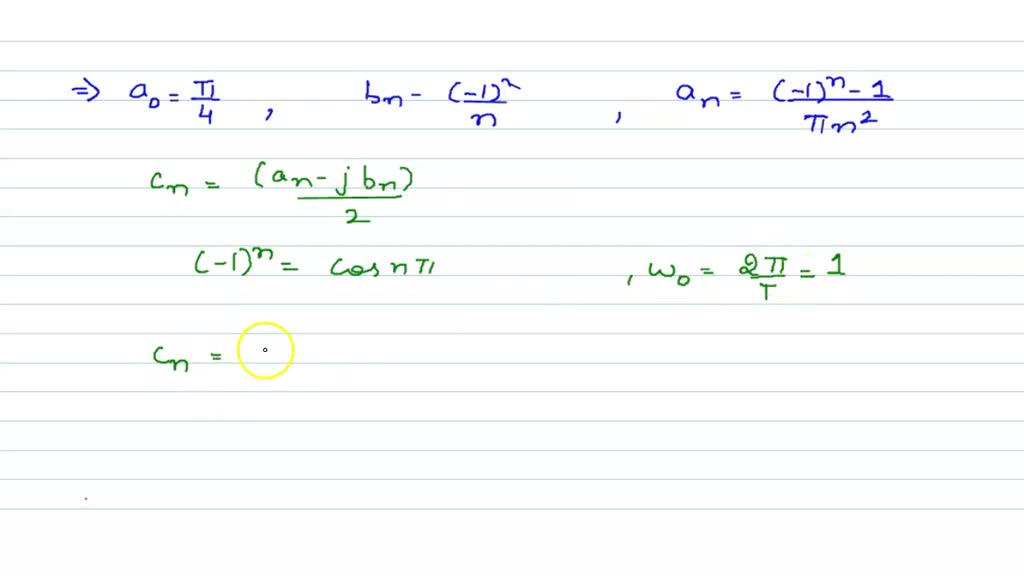 ⇒ a₀ = π/4 , bₙ - (-1)ⁿ/n , aₙ = ((-1)ⁿ - 1)/(πn²)
cₙ = (aₙ - j bₙ)/2
(-1)ⁿ = cos nπ , ω₀ = 2π/T = 1
cₙ =